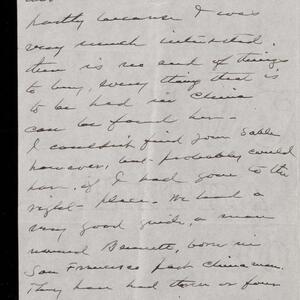 partly because I was
very much interested.
there is no end of things
to buy, every thing that is
to be had in China
can be found here -
I couldn't find your sable
however, but probably could
have, if I had gone to the
right - place. We had a
very good guide, a man
named Bennett, born in
San Francisco part Chinaman.
They have had three or four